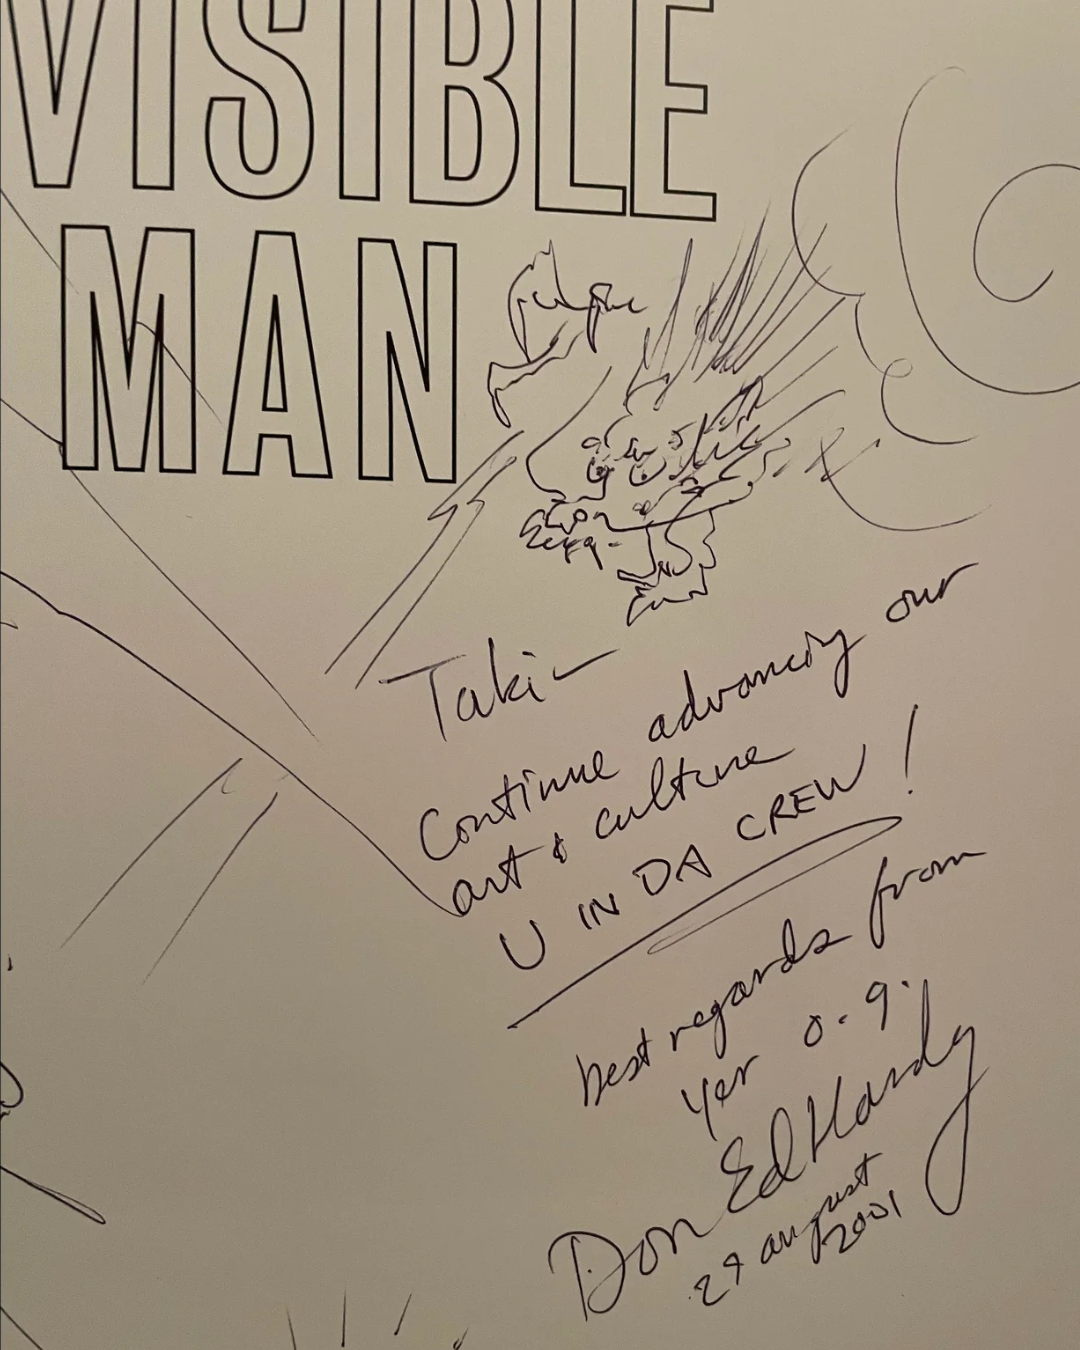 VISIBLE
MAN
Taki -
Continue advancing our
art & culture
U IN DA CREW!
best regards from
yer O.G.
Don Ed Hardy
29 august
2001